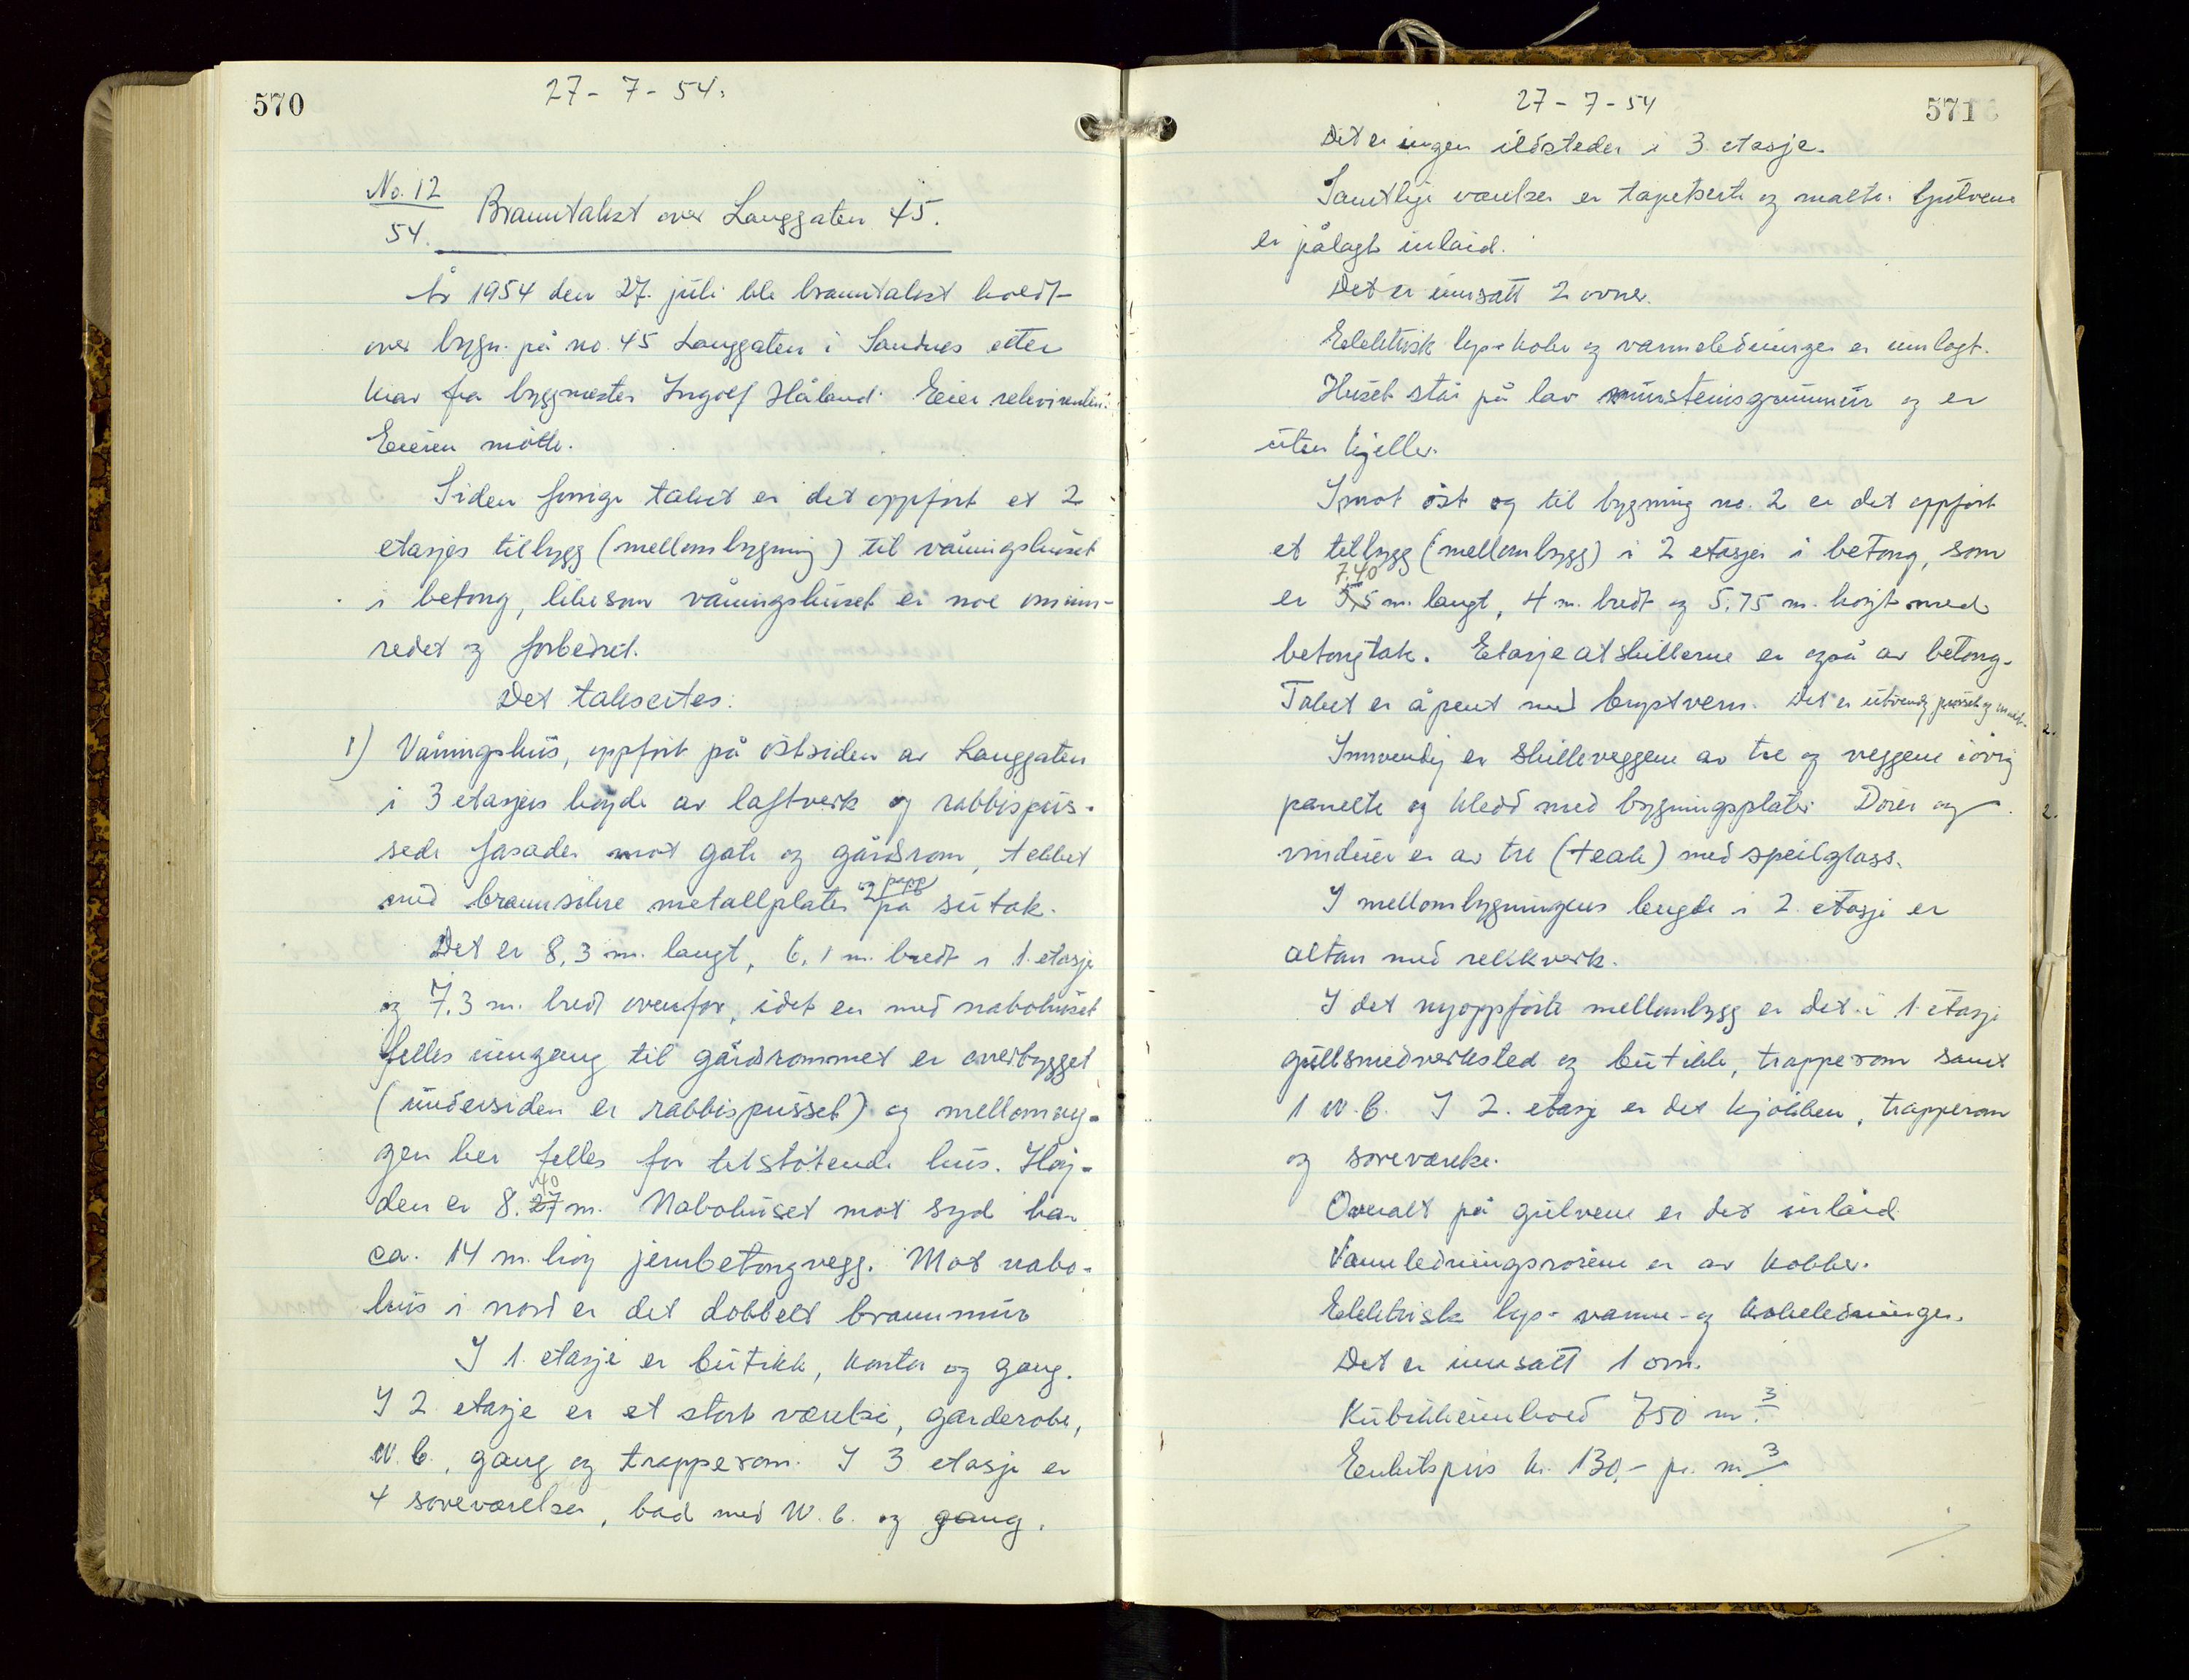 570
27-7-54.
No. 12
54.
Branntakst over Langgaten 45.
År 1954 den 27. juli ble branntakst holdt
over bygn. på no. 45 Langgaten i Sandnes etter
krav fra byggmester Ingolf Håland. Eier rekvirenten.
Eieren møtte.
Siden forrige takst er det oppført et 2
etasjes tilbygg (mellombygning) til våningshuset
i betong, likesom våningshuset er noe ominn-
redet og forbedret.
Det takseres:
1) Våningshus, oppført på østsiden av Langgaten
i 3 etasjers høyde av laftverk og rabbispus-
sede fasader mot gate og gårdsrom, tekket
med brannsikre metallplater og papp på sutak.
Det er 8,3 m. langt, 6,1 m. bredt i 1. etasje
og 7,3 m. bredt ovenfor, idet en med nabohuset
felles inngang til gårdsrommet er overbygget
(undersiden er rabbispusset) og mellomveg-
gen her felles for tilstøtende hus. Høy-
den er 8.27 40 m. Nabohuset mot syd har
ca. 14 m. høy jernbetongvegg. Mot nabo-
hus i nord er det dobbelt brannmur
I 1. etasje er butikk, kontor og gang.
I 2 etasje er et stort værelse, garderobe,
W.C., gang og trapperom. I 3 etasje er
4 soveværelser, bad med W.C. og gang.
571
27-7-54
Det er ingen ildsteder i 3 etasje.
Samtlige værelser er tapetserte og malte. Gulvene
er pålagt inlaid.
Det er innsatt 2 ovner.
Elektrisk lys- koke og varmeledninger er innlagt.
Huset står på lav mursteinsgrunnmur og er
uten kjeller.
Imot øst og til bygning no. 2 er det oppført
et tilbygg (mellombygg) i 2 etasjer i betong, som
er 7.40 m. langt, 4 m. bredt og 5,75 m. høyt med
betongtak. Etasjeatskillerne er også av betong.
Taket er åpent med brystvern. Det er utvendig pusset og malt.
Innvendig er skilleveggene av tre og veggene iøvrig
panelte og kledd med bygningsplater. Dører og
vinduer er av tre (teak) med speilglass.
I mellombygningens lengde i 2. etasje er
altan med rekkverk.
I det nyoppførte mellombygg er det i 1. etasje
gullsmedverksted og butikk, trapperom samt
1 W.C. I 2. etasje er det kjøkken, trapperom
og soveværelse.
Overalt på gulvene er det inlaid
Vannledningsrørene er av kobber.
Elektrisk lys- varme- og kokeledninger.
Det er innsatt 1 ovn.
Kubikkinnhold 750 m³.
Enhetspris kr. 130,- pr. m³